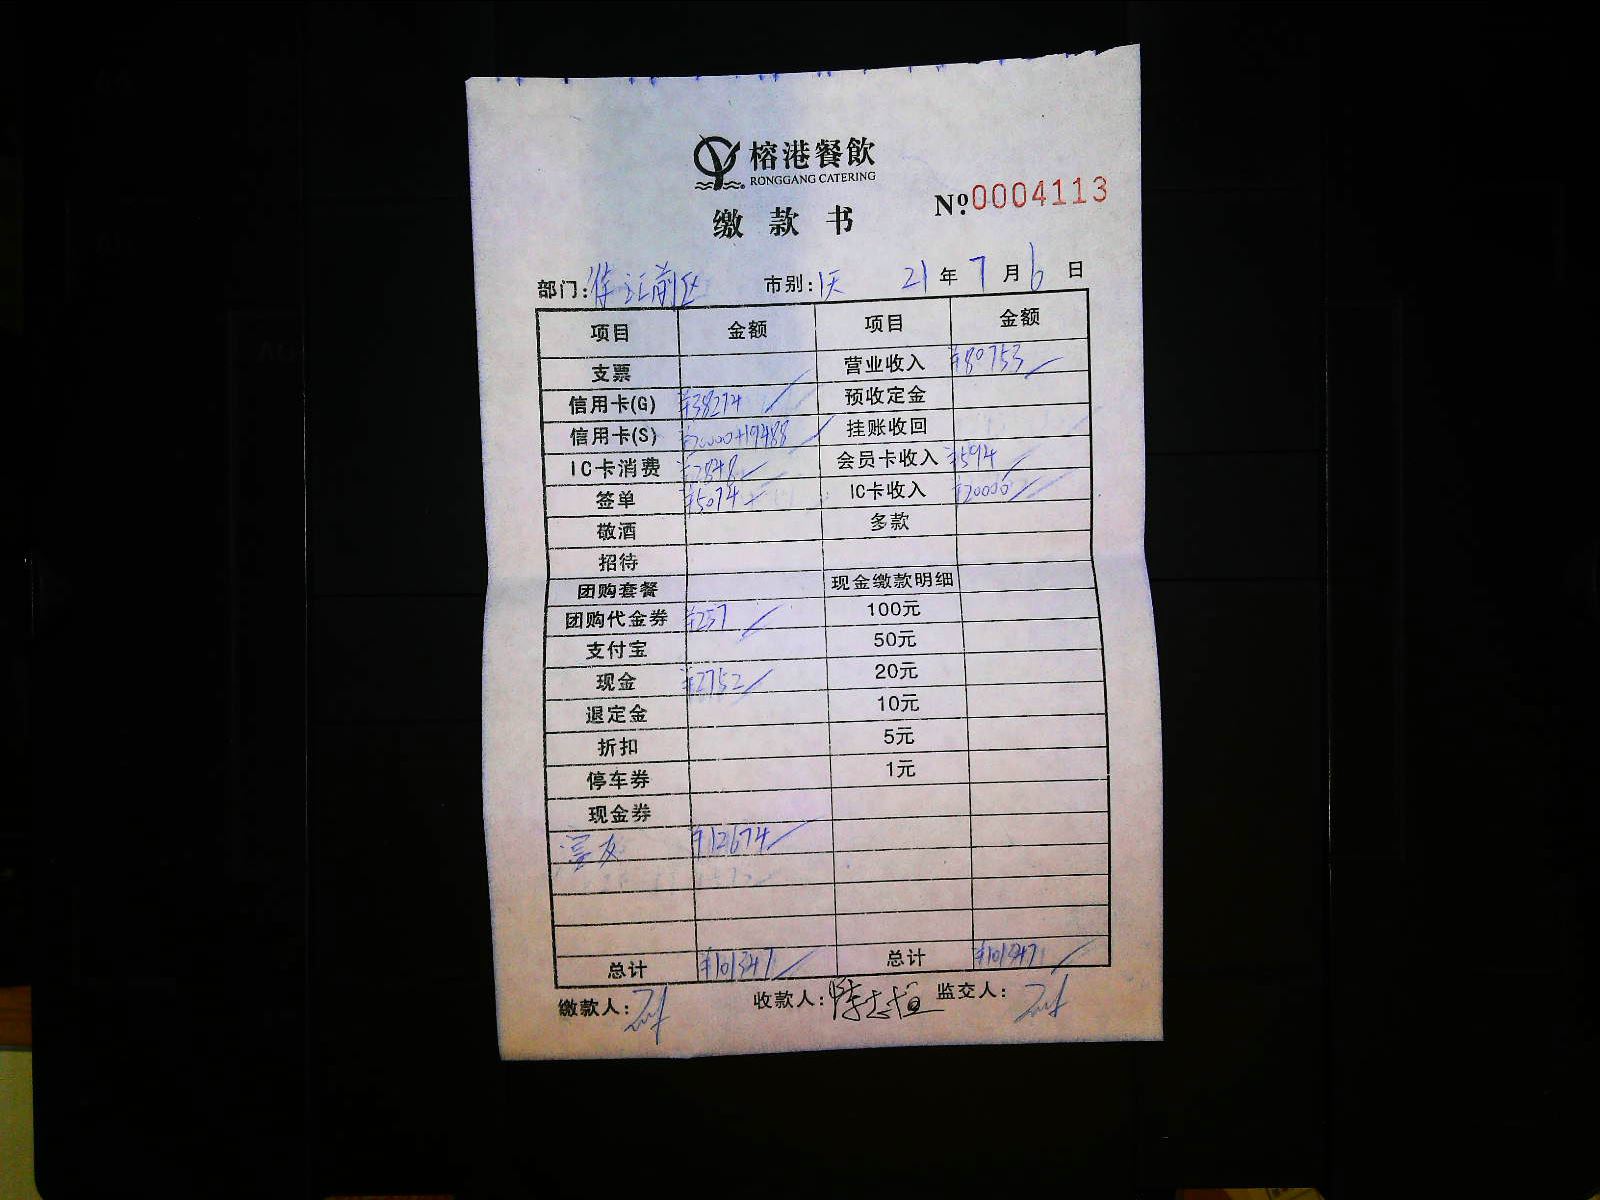 榕港餐飲
RONGGANG CATERING
缴款书 Nº 0004113
部门: 徐汇前区 市别: 1天 21年7月6日
项目 金额 项目 金额
支票 营业收入 ¥80753
信用卡(G) ¥38274 预收定金
信用卡(S) 20000+19488 挂账收回
IC卡消费 ¥2848 会员卡收入 ¥594
签单 ¥5074 IC卡收入 ¥20000
敬酒 多款
招待
团购套餐 现金缴款明细
团购代金券 ¥257 100元
支付宝 50元
现金 ¥2752 20元
退定金 10元
折扣 5元
停车券 1元
现金券
¥12674
总计 ¥101347 总计 ¥101347
缴款人: 收款人: 陈志恒 监交人: